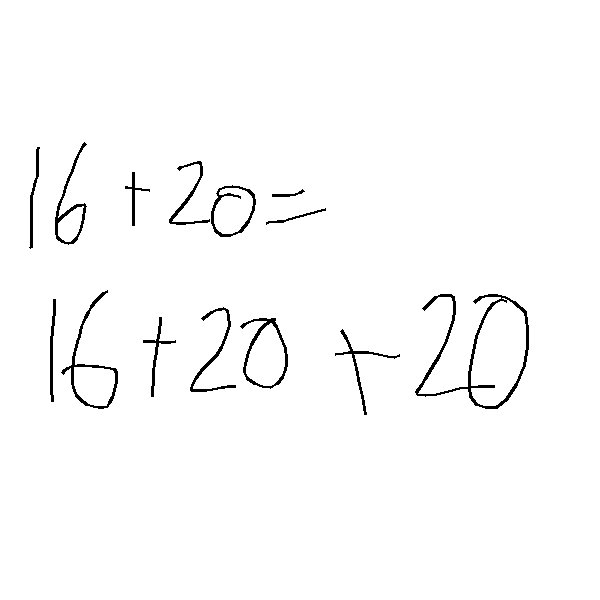 16 + 20 =
16 + 20 + 20